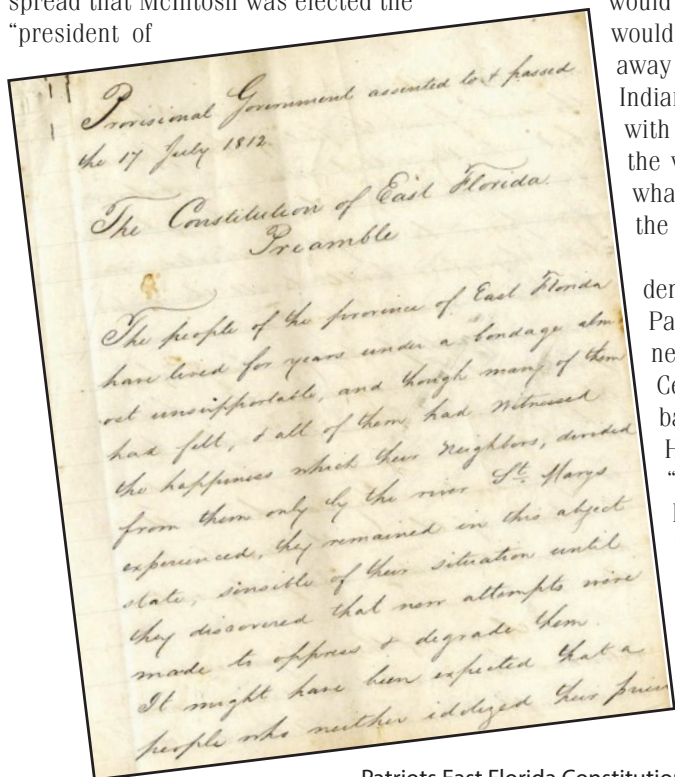 spread that McIntosh was elected the
“president of
Provisional Government assented to & passed
the 17 July 1812.
The Constitution of East Florida.
Preamble
The people of the province of East Florida
have lived for years under a bondage alm
ost unsupportable, and though many of them
had felt, & all of them had witnessed
the happiness which their Neighbors, divided
from them only by the river St. Marys
experienced, they remained in this abject
state, sensible of their situation until
they discovered that new attempts were
made to oppress & degrade them.
It might have been expected that a
people who neither idolized their
would
would
away
Indian
with
the
the
“
Patriots East Florida Constitution